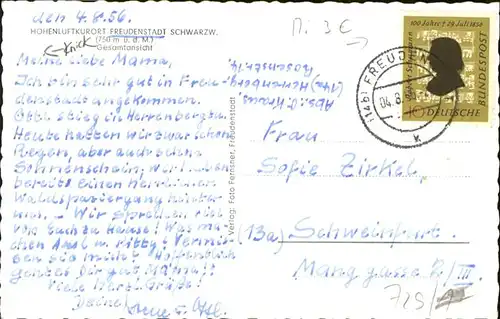 den 4.8.56.
HÖHENLUFTKURORT FREUDENSTADT SCHWARZW.
(750 m ü. d. M.)
Gesamtansicht
Knick
Meine liebe Mama,
Ich bin sehr gut in Freu-
denstadt angekommen.
stieg in Herrenberg
Heute hatten wir zwar schon
Regen, aber auch schon
Sonnenschein, wir haben
bereits einen herrlichen
Waldspaziergang hinter
uns. – Wir sprechen viel
von Euch zu Hause! Was ma-
chen Amsl u. Kitty? Vermis-
sen sie mich? Hoffentlich
geht es Dir gut Mama!!
Viele Herzl. Grüße!
Deine
Verlag: Foto Fernsner, Freudenstadt
Abs: J. Kraus,
(14a) Herrenberg
3 €
100 Jahre † 29. Juli 1856
Robert Schumann
10 DEUTSCHE
BUNDESPOST
(14b) FREUDENS
04.8.
k
Frau
Sofie Zirkel,
(13a) Schweinfurt.
Manggasse 2/III
729/